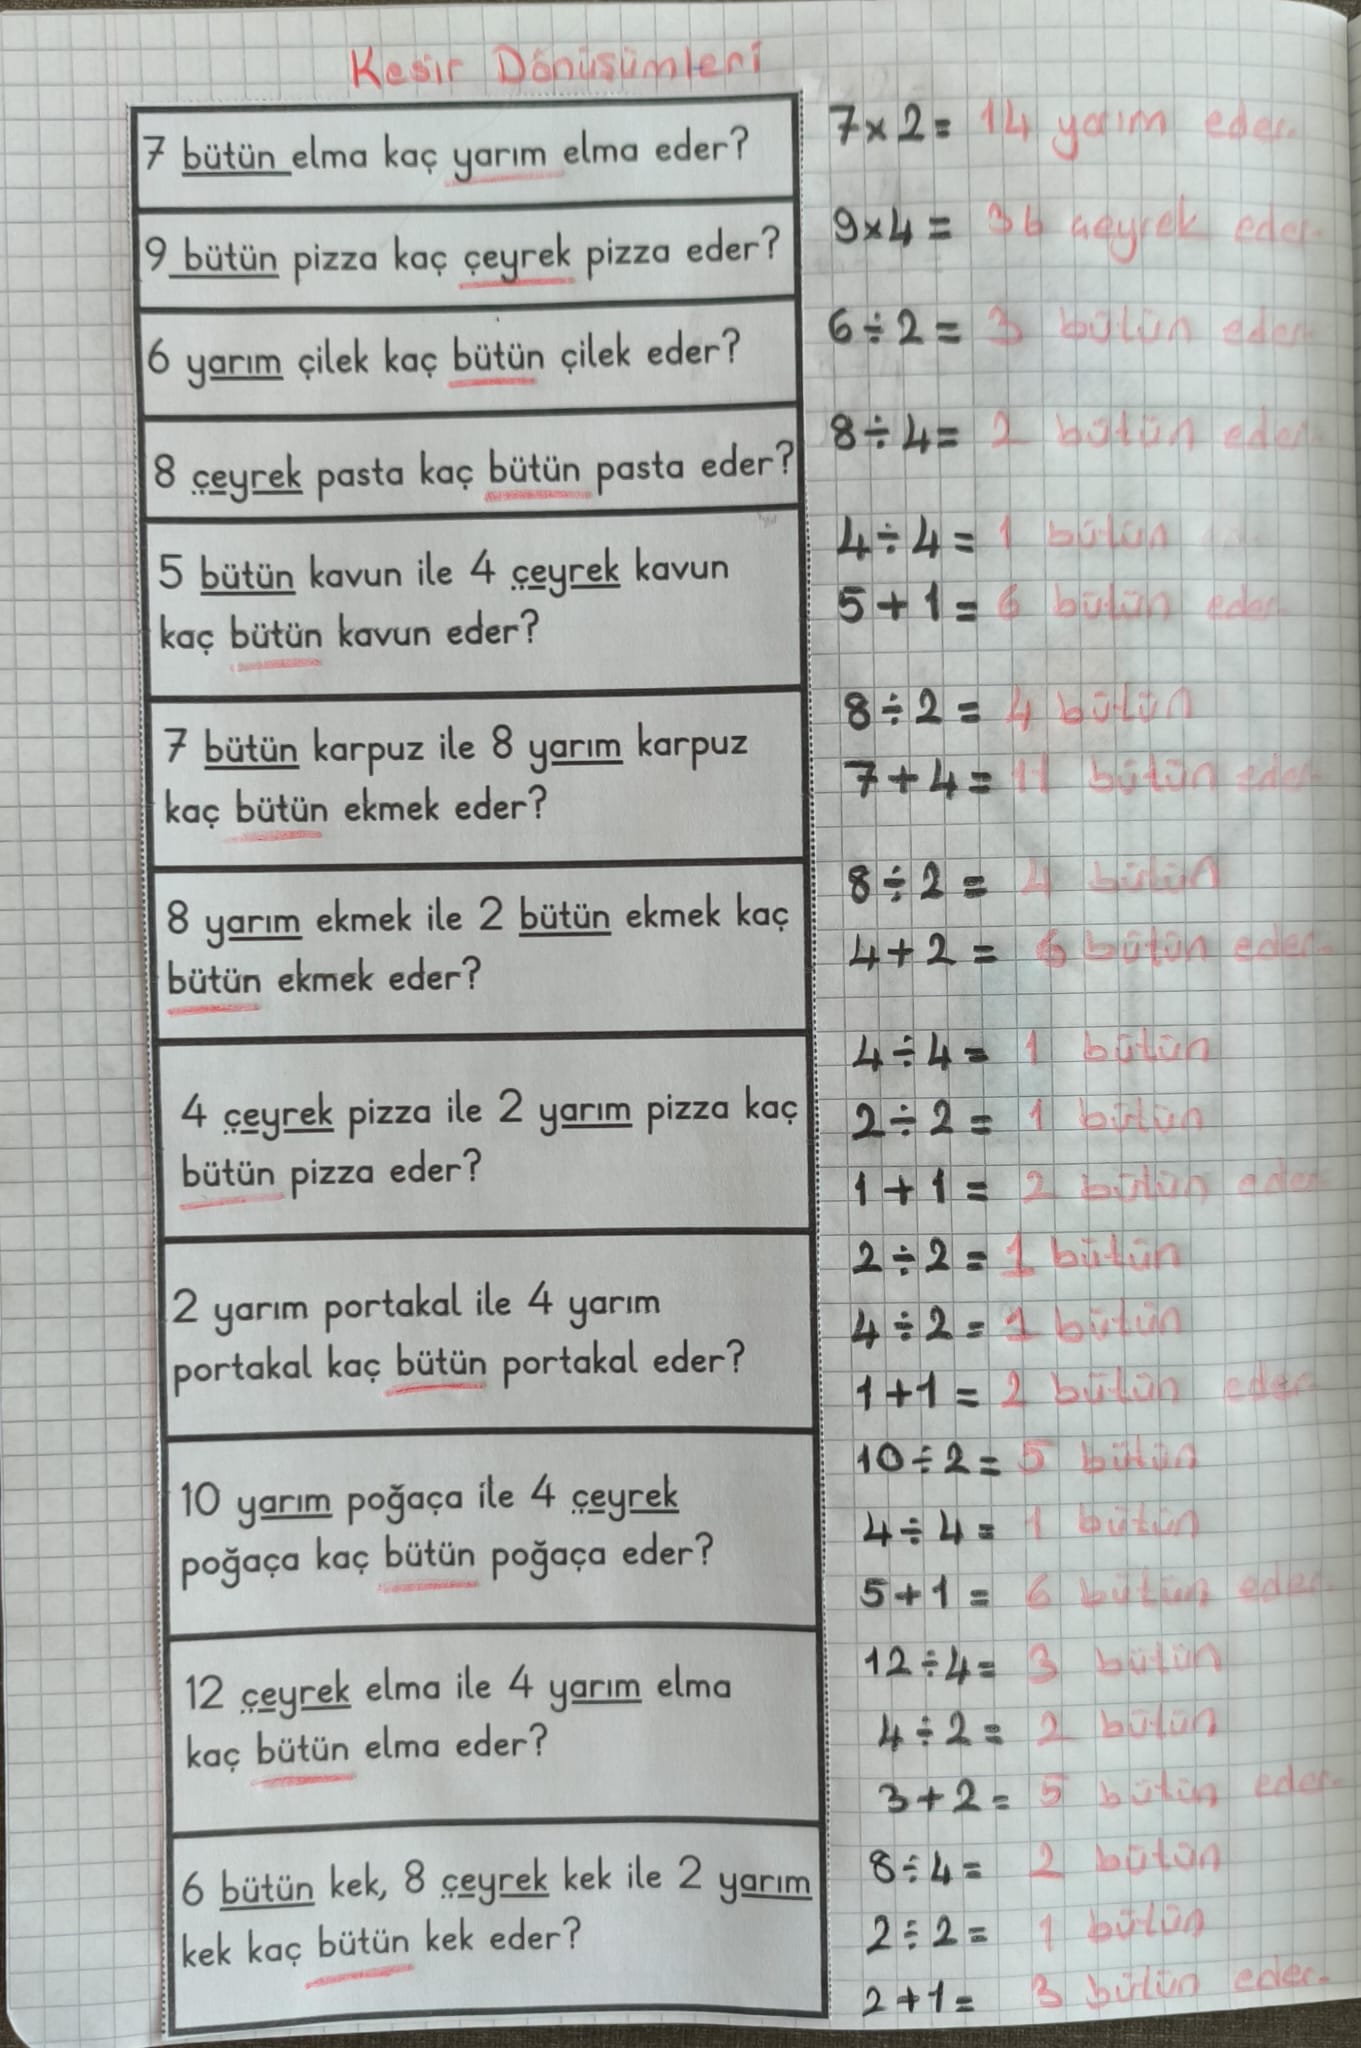 Kesir Dönüşümleri
7 bütün elma kaç yarım elma eder?
7x2= 14 yarım eder.
9 bütün pizza kaç çeyrek pizza eder?
9x4= 36 çeyrek eder.
6 yarım çilek kaç bütün çilek eder?
6÷2= 3 bütün eder.
8 çeyrek pasta kaç bütün pasta eder?
8÷4= 2 bütün eder.
5 bütün kavun ile 4 çeyrek kavun
kaç bütün kavun eder?
4÷4= 1 bütün
5+1= 6 bütün eder
7 bütün karpuz ile 8 yarım karpuz
kaç bütün ekmek eder?
8÷2= 4 bütün
7+4= 11 bütün eder
8 yarım ekmek ile 2 bütün ekmek kaç
bütün ekmek eder?
8÷2= 4 bütün
4+2= 6 bütün eder.
4 çeyrek pizza ile 2 yarım pizza kaç
bütün pizza eder?
4÷4= 1 bütün
2÷2= 1 bütün
1+1= 2 bütün eder
2 yarım portakal ile 4 yarım
portakal kaç bütün portakal eder?
2÷2= 1 bütün
4÷2= 1 bütün
1+1= 2 bütün eder
10 yarım poğaça ile 4 çeyrek
poğaça kaç bütün poğaça eder?
10÷2= 5 bütün
4÷4= 1 bütün
5+1= 6 bütün eder.
12 çeyrek elma ile 4 yarım elma
kaç bütün elma eder?
12÷4= 3 bütün
4÷2= 2 bütün
3+2= 5 bütün eder.
6 bütün kek, 8 çeyrek kek ile 2 yarım
kek kaç bütün kek eder?
8÷4= 2 bütün
2÷2= 1 bütün
2+1= 3 bütün eder.